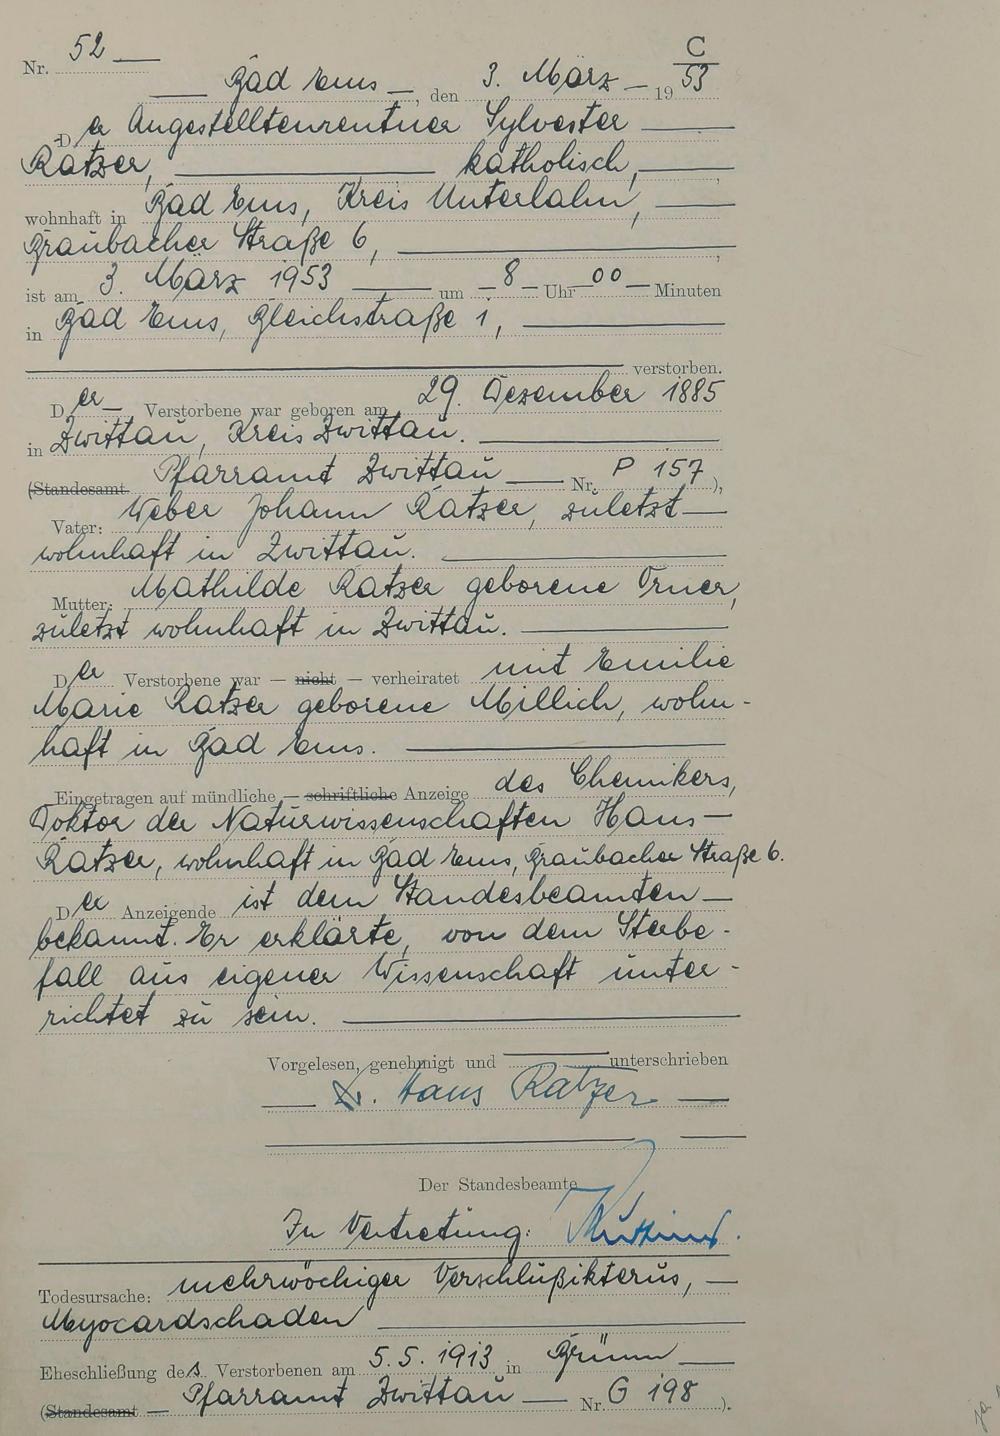 Nr. 52 C
Bad Ems, den 3. März 1953
Der Angestelltenrentner Sylvester
Ratzer, katholisch,
wohnhaft in Bad Ems, Kreis Unterlahn,
Braubacher Straße 6,
ist am 3. März 1953 um 8 Uhr 00 Minuten
in Bad Ems, Bleichstraße 1,
verstorben.
Der Verstorbene war geboren am 29. Dezember 1885
in Zwittau, Kreis Zwittau.
(Standesamt Pfarramt Zwittau Nr. P 157),
Vater: Weber Johann Ratzer, zuletzt
wohnhaft in Zwittau.
Mutter: Mathilde Ratzer geborene Orner,
zuletzt wohnhaft in Zwittau.
Der Verstorbene war — nicht — verheiratet mit Emilie
Marie Ratzer geborene Millich, wohn-
haft in Bad Ems.
Eingetragen auf mündliche — schriftliche Anzeige des Chemikers,
Doktor der Naturwissenschaften Hans
Ratzer, wohnhaft in Bad Ems, Braubacher Straße 6.
Der Anzeigende ist dem Standesbeamten
bekannt. Er erklärte, von dem Sterbe-
fall aus eigener Wissenschaft unter-
richtet zu sein.
Vorgelesen, genehmigt und unterschrieben
Dr. Hans Ratzer
Der Standesbeamte
In Vertretung:
Todesursache: mehrwöchiger Verschlußikterus,
Myocardschaden
Eheschließung des Verstorbenen am 5.5.1913 in Brünn
(Standesamt — Pfarramt Zwittau Nr. G 198).